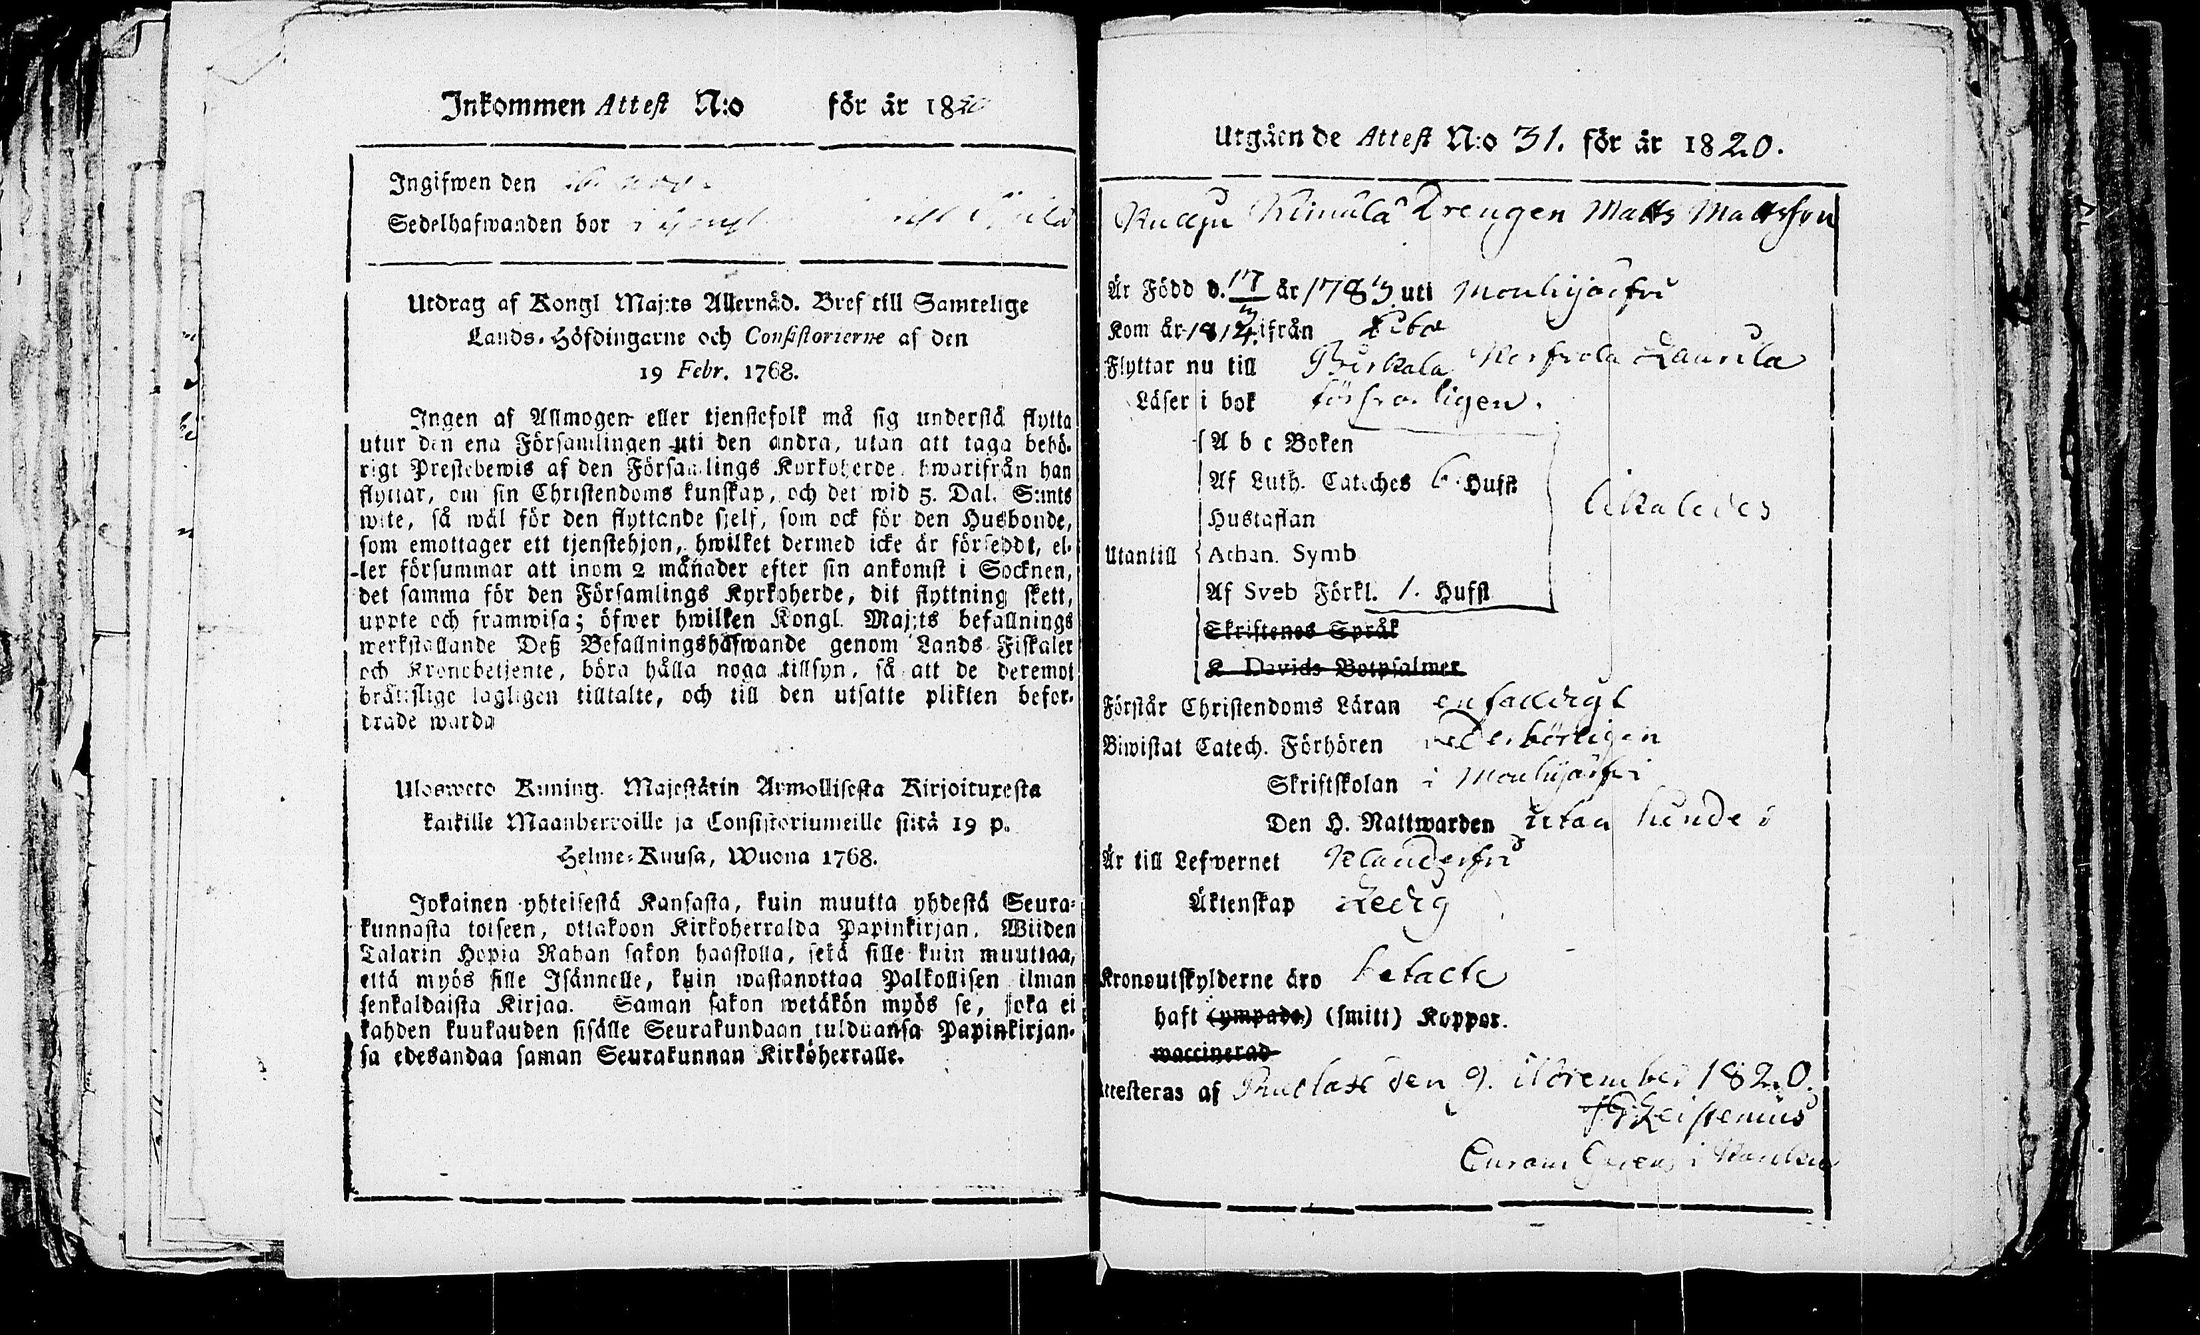 Inkommen Attest N:o för år 1820
Ingifwen den
Sedelhafwanden bor
Utdrag af Kongl Maj:ts Allernåd. Bref till Samtelige
Lands-Höfdingarne och Consistorierne af den
19 Febr. 1768.
Ingen af Allmogen eller tjenstefolk må sig understå flytta
utur den ena Församlingen uti den andra, utan att taga behö-
rigt Prestebewis af den Församlings Kyrkoherde, hwarifrån han
flyttar, om sin Christendoms kunskap, och det wid 5. Dal. S:mts
wite, så wäl för den flyttande sjelf, som ock för den Husbonde,
som emottager ett tjenstehjon, hwilket dermed icke är försedt, el-
ler försummar att inom 2 månader efter sin ankomst i Socknen,
det samma för den Församlings Kyrkoherde, dit flyttning skett,
uppte och framwisa; öfwer hwilken Kongl. Maj:ts befallnings
werkställande Deß Befallningshafwande genom Lands-Fiskaler
och Kronobetjente, böra hålla noga tillsyn, så att de deremot
bråtslige lagligen tilltalte, och till den utsatte plikten befor-
drade warda
Ulosweto Kuning. Majestätin Armollisesta Kirjoituxesta
kaikille Maanherroille ja Consistoriumeille siitä 19 p.
Helme-Kuusa, Wuona 1768.
Jokainen yhteisestä Kansasta, kuin muutta yhdestä Seura-
kunnasta toiseen, ottakoon Kirkoherralda Papinkirjan, Wiiden
Talarin Hopia Rahan sakon haastolla, sekä sille kuin muuttaa,
että myös sille Isännelle, kuin wastanottaa Palkollisen ilman
senkaldaista Kirjaa. Saman sakon wetäkön myös se, joka ei
kahden kuukauden sisälle Seurakundaan tulduansa Papinkirjan-
sa edesandaa saman Seurakunnan Kirköherralle.
Utgåen de Attest N:o 31. för år 1820.
Drengen Matts Mattsson
Är Född d. 17/3 år 1783 uti Mouhijärfvi
Kom år 1814 ifrån
Flyttar nu till Birkala Laurila
Läser i bok försvarligen.
Utantill
A b c Boken
Af Luth. Cateches 6. Hufst
Hustaflan
Athan. Symb
Af Sveb Förkl. 1. Hufst
likaledes
Skriftenes Språk
K Davids Botpsalmer
Förstår Christendoms Läran enfalldigt
Biwistat Catech. Förhören vederbörligen
Skriftskolan i Mouhijärfvi
Den H. Nattwarden utan hinder
Är till Lefwernet Klanderfri
Äktenskap Ledig
Kronoutskylderne äro betalte
haft (ympade) (smitt) Koppor.
waccinerad
Attesteras af den 9. November 1820.